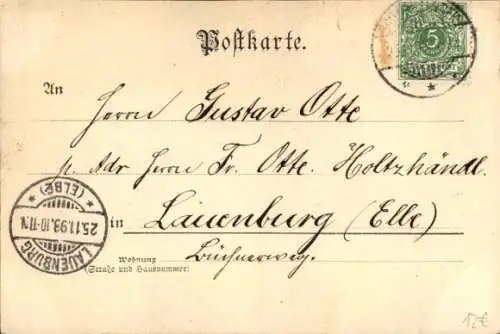 Postkarte.
5
An
Herrn Gustav Otte
p. Adr Herrn Fr. Otte. Holtzhändl.
in Lauenburg (Elbe)
Wohnung
(Straße und Hausnummer)
Büchnerweg.
LAUENBURG
25.11.98.10-11N.
* (ELBE) *
12€